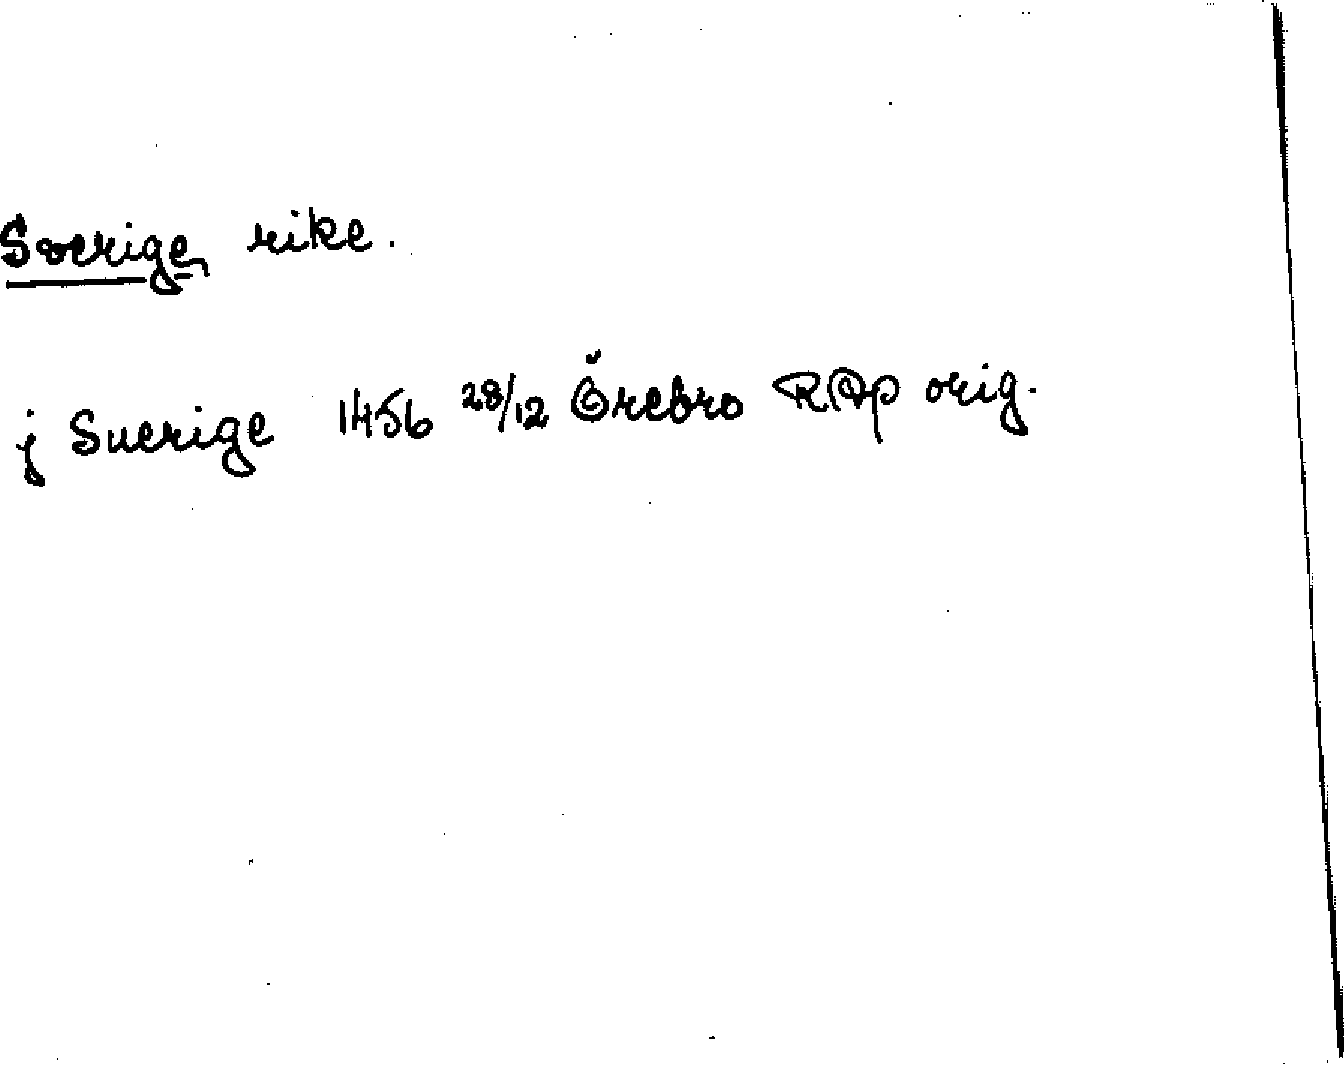 Sverige, rike.
j Suerige 1456 28/12 Örebro RAp orig.